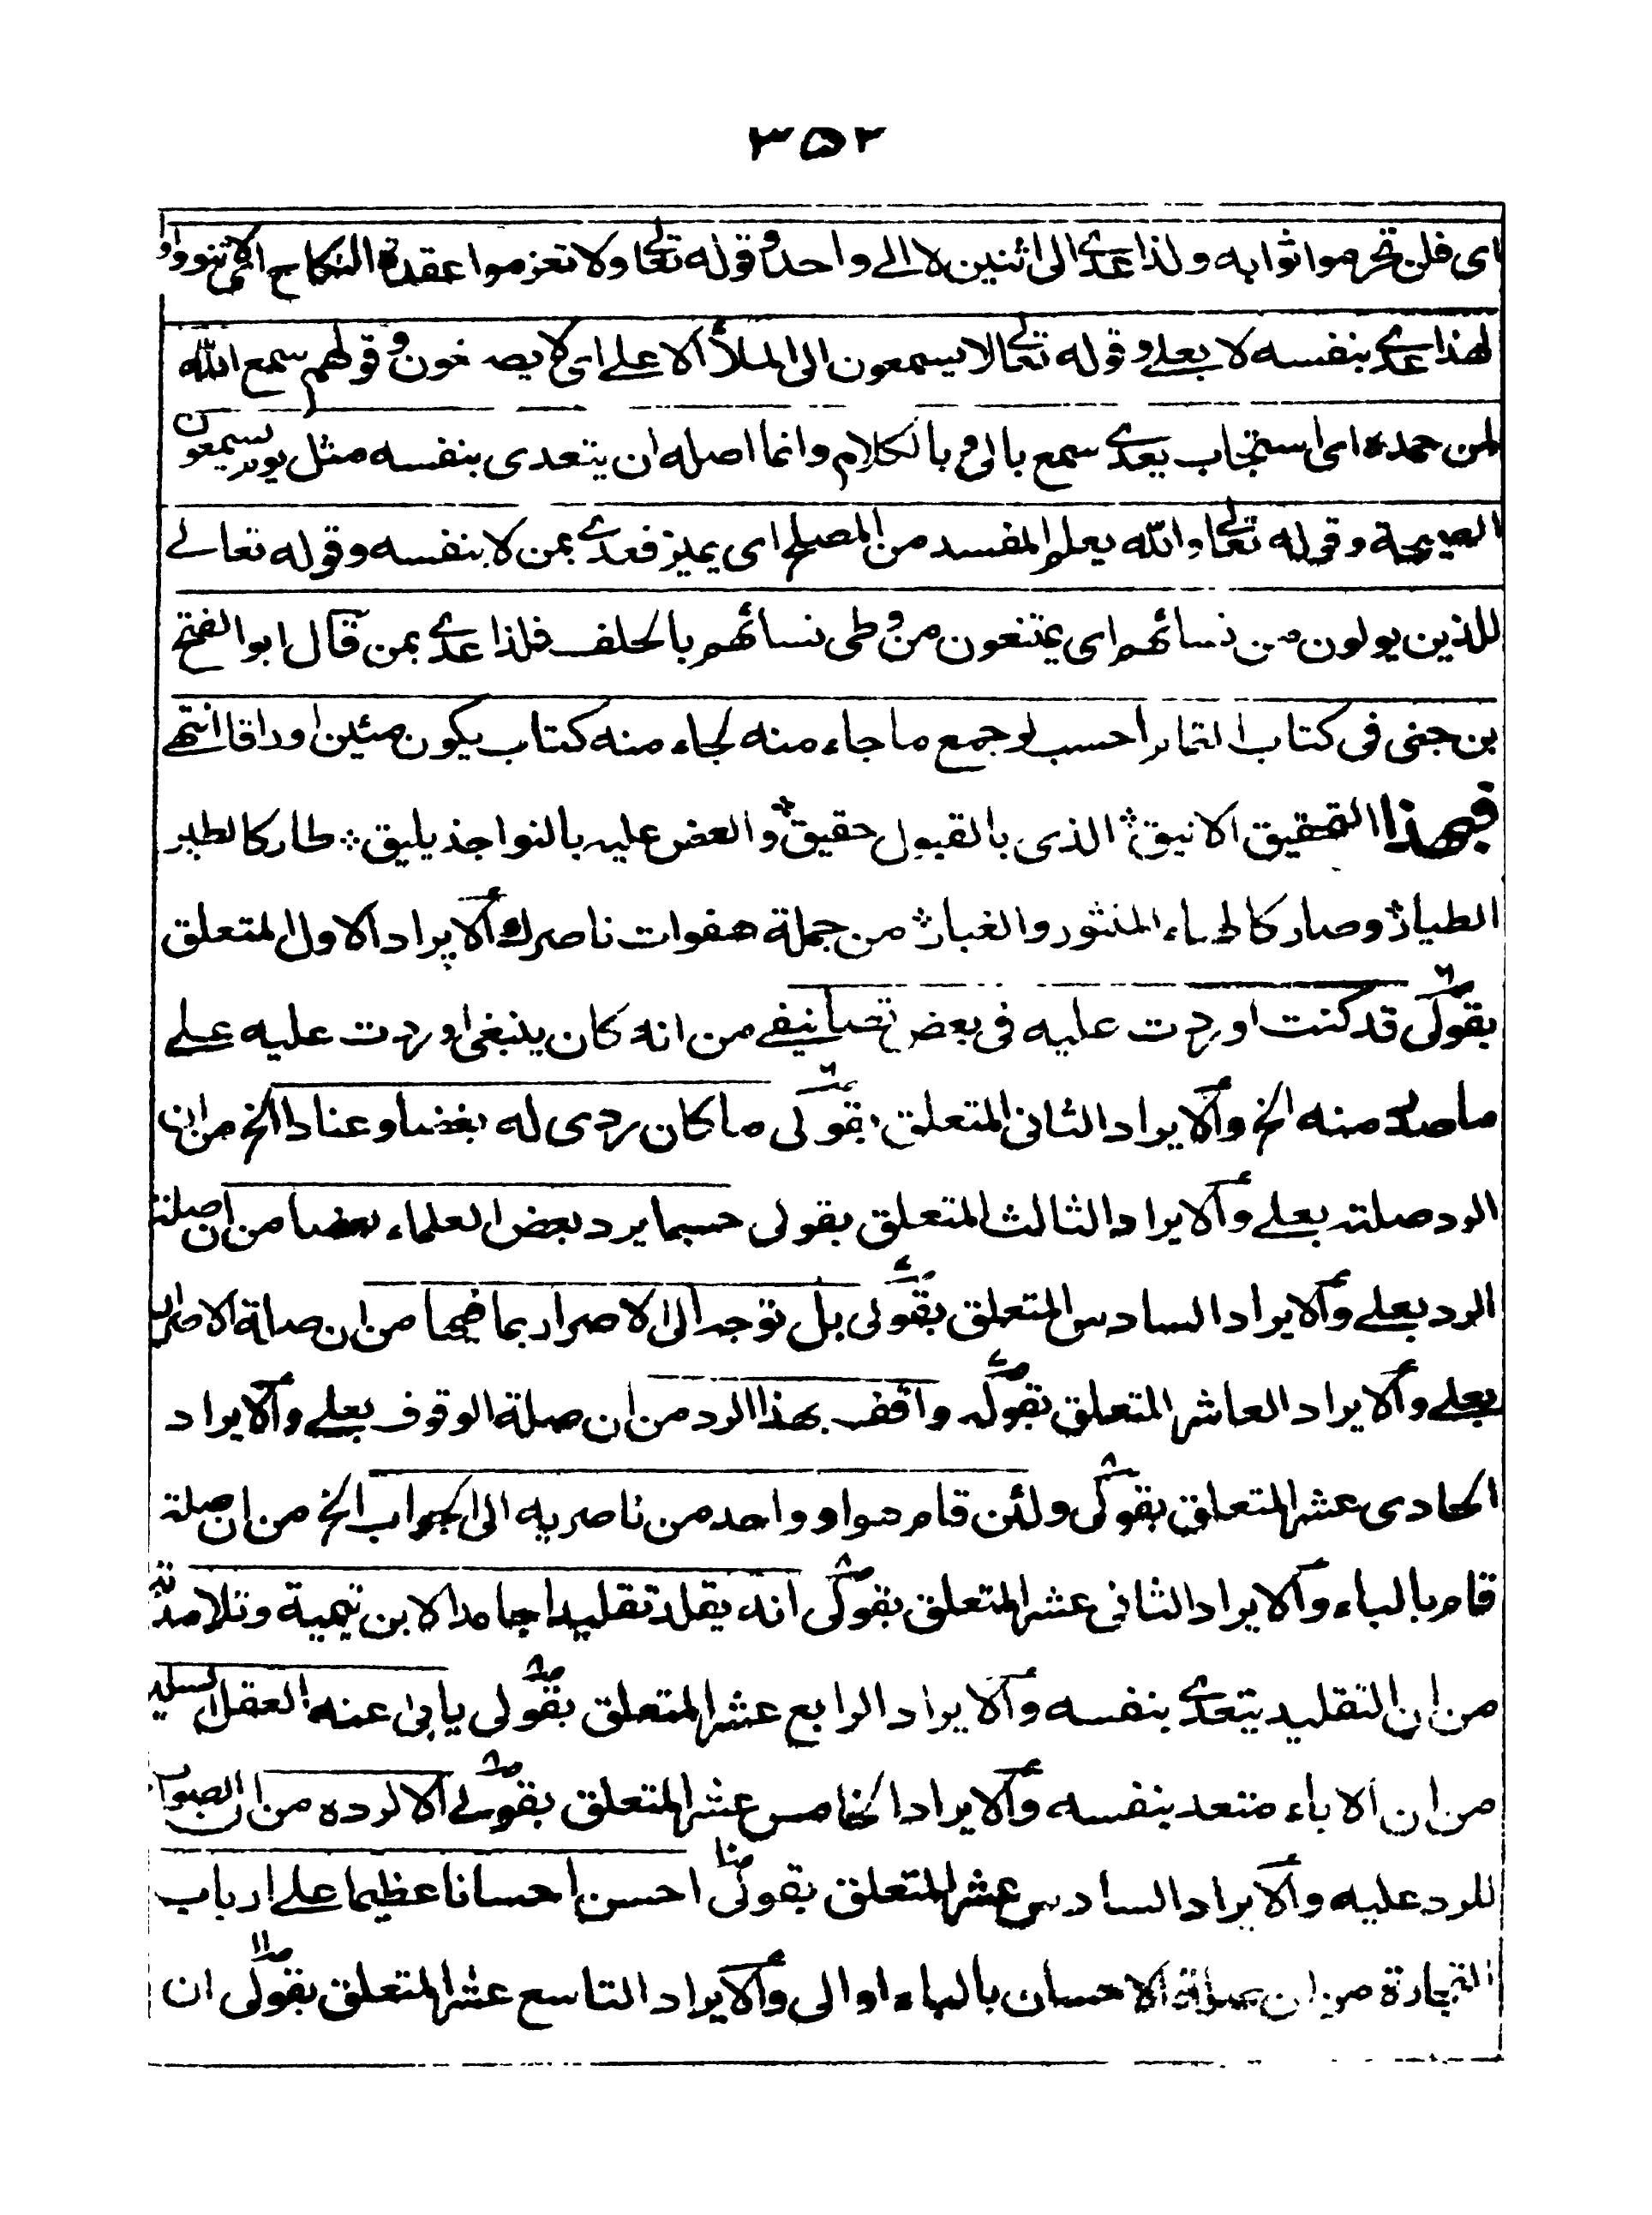 ٣٥٢
اى فلن تحرموا ثوابه ولذا عدے الى اثنين لا الے واحد وقوله تعالے ولا تعزموا عقدة النكاح اى لا تنووا و
لهذا عدے بنفسه لا بعلے وقوله تعالے لا يسمعون الى الملأ الا علے اى لا يصغون وقولهم سمع الله
لمن حمده اى استجاب يعدے سمع بالى و باللام وانما اصله ان يتعدى بنفسه مثل يوم يسمعون
الصيحة وقوله تعالے والله يعلم المفسد من المصلح اى يميز فعدے بمن لا بنفسه وقوله تعالے
للذين يولون من نسائهم اى يمتنعون من وطى نسائهم بالحلف فلذا عدے بمن قال ابو الفتح
بن جنى فى كتاب التمام احسب لو جمع ما جاء منه لجاء منه كتاب يكون مئين اوراقا انتهے
فبهذا التحقيق الانيق الذى بالقبول حقيق والعض عليه بالنواجذ يليق طار كالطير
الطيار وصار كالهباء المنثور والغبار من جملة هفوات ناصرك الايراد الاول المتعلق
بقولى قد كنت اوردت عليه فى بعض تصانيفے من انه كان ينبغى اوردت عليه علے
ما صدر منه الخ والايراد الثانى المتعلق بقولى ما كان ردى له بغضا وعنادا الخ من ان
الرد صلته بعلے والايراد الثالث المتعلق بقولى حسبما يرد بعض العلماء بعضا من ان صلة
الرد بعلے والايراد السادس المتعلق بقولى بل توجه الى الاصرار بما ضحيا من ان صلة الاصرار
بعلے والايراد العاشر المتعلق بقوله واقف بهذا الرد من ان صلة الوقوف بعلے والايراد
الحادى عشر المتعلق بقولى ولئن قام هو او واحد من ناصريه الى الجواب الخ من ان صلة
قام بالباء والايراد الثانى عشر المتعلق بقولى انه يقلد تقليدا جامدا لابن تيمية وتلامذته
من ان التقليد يتعدے بنفسه والايراد الرابع عشر المتعلق بقولى يابى عنه العقل السليم
من ان الاباء متعد بنفسه والايراد الخامس عشر المتعلق بقولے الا لرده من ان الصواب
للرد عليه والايراد السادس عشر المتعلق بقولى احسن احسانا عظيما علے ارباب
التجارة من ان صلة الاحسان بالباء او الى والايراد التاسع عشر المتعلق بقولى ان